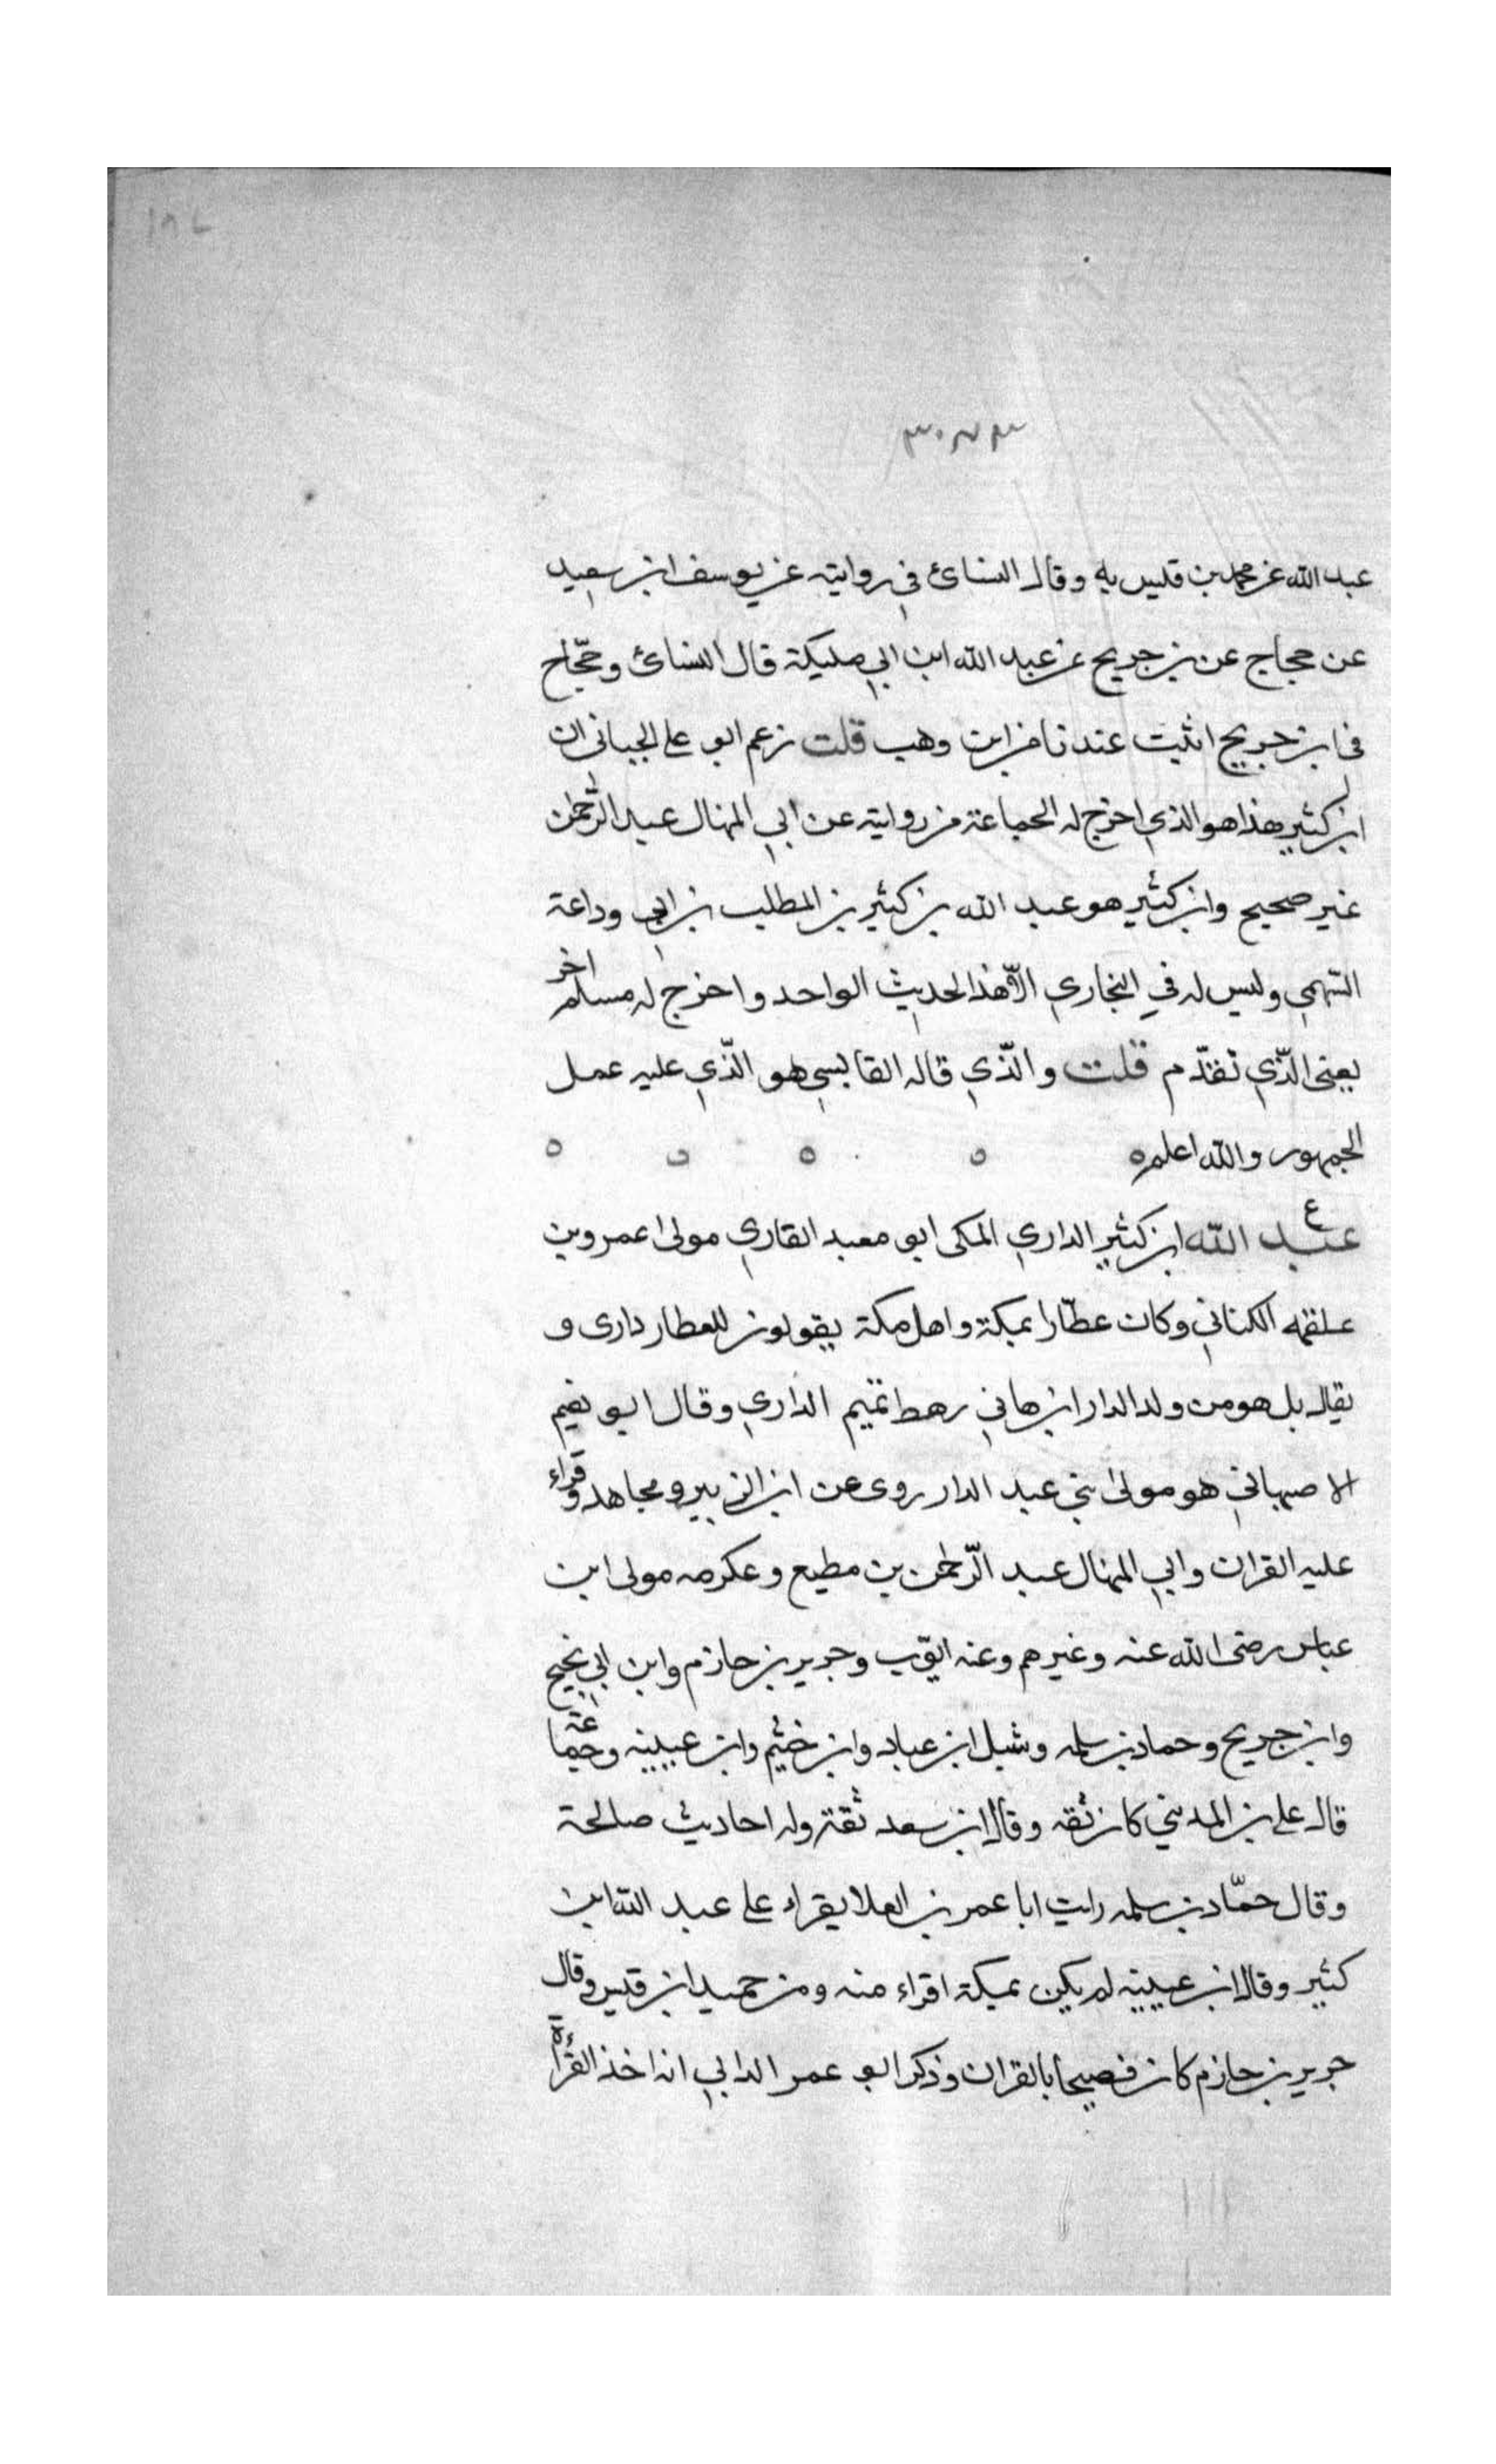 عبد الله عن محمد بن قيس به وقال النسائ في روايته عن يوسف ابن سعيد
عن حجاج عن بن جريج عن عبد الله ابن ابي مليكة قال النسائ وحجّاج
فى ابن جريج اثبت عندنا من ابن وهب قلت زعم ابو على الجيانى ان
ابن كثير هذا هو الذي اخرج له الجماعة من روايته عن ابي المنهال عبد الرحمن
غير صحيح وابن كثير هو عبد الله بن كثير بن المطلب بن ابي وداعة
السّهمي وليس له في البخاري الّا هذا الحديث الواحد واخرج له مسلم اخر
يعنى الذّي تقدّم قلت والّذي قاله القابسي هو الّذي عليه عمل
الجمهور والله اعلم ه ه ه ه ه
ع
عبد الله ابن كثير الداري المكى ابو معبد القاري مولى عمرو بن
علقمه الكناني وكان عطّارا بمكة واهل مكة يقولون للعطار دارى و
يقال بل هو من ولد الدار ابن هاني رهط تميم الداري وقال ابو نعيم
الاصبهاني هو مولى بني عبد الدار روى عن ابن الزبير ومجاهد وقراء
عليه القران وابي المنهال عبد الرّحمن بن مطيع وعكرمه مولى ابن
عباس رضى الله عنه وغيرهم وعنه ايّوب وجرير بن حازم وابن ابي نجيح
وابن جريج وحماد بن سلمه وشبل ابن عباد وابن خثيم وابن عيينه وجماعة
قال على بن المديني كان ثقه وقال ابن سعد ثقة وله احاديث صالحة
وقال حمّاد بن سلمه رايت ابا عمر بن العلا يقراء على عبد الله ابن
كثير وقال ابن عيينه لم يكن بمكة اقراء منه ومن حميد ابن قيس وقال
جرير بن حازم كان فصيحا بالقران وذكر ابو عمر الداني انه اخذ القراءة